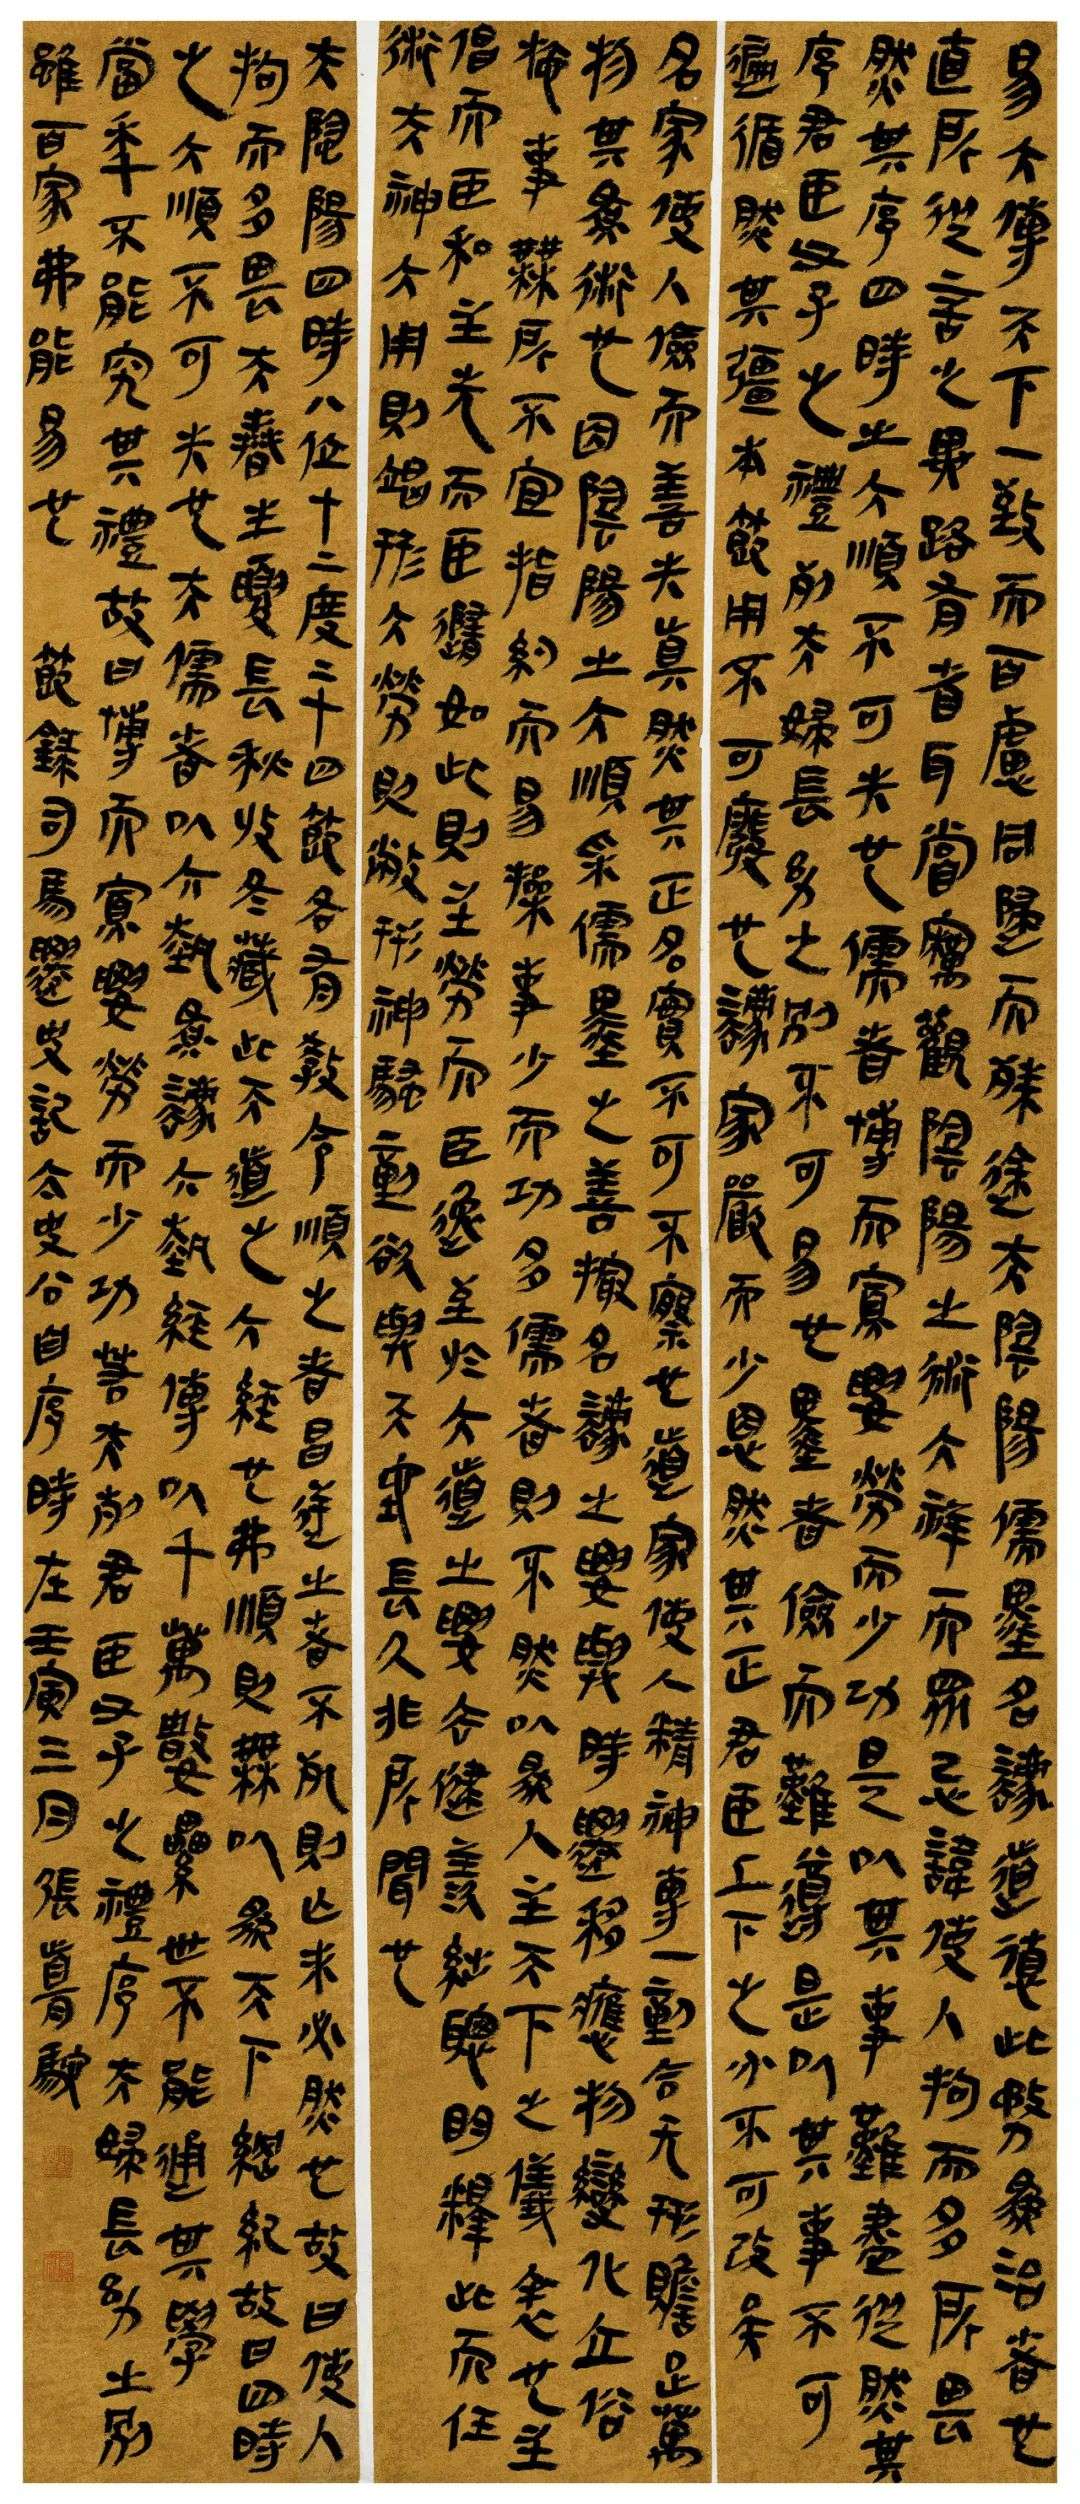 易大傳天下一致而百慮同歸而殊途夫陰陽儒墨名灋道德此務為治者也
直所從言之異路有省耳嘗竊觀陰陽之術大祥而眾忌諱使人拘而多所畏
然其序四時之大順不可失也儒者博而寡要勞而少功是以其事難盡從然其
序君臣父子之禮列夫婦長幼之別不可易也墨者儉而難遵是以其事不可
遍循然其彊本節用不可廢也灋家嚴而少恩然其正君臣上下之分不可改矣
名家使人儉而善失真然其正名實不可不察也道家使人精神專一動合无形贍足萬
物其為術也因陰陽之大順采儒墨之善撮名灋之要與時遷移應物變化立俗
施事無所不宜指約而易操事少而功多儒者則不然以為人主天下之儀表也主
倡而臣和主先而臣隨如此則主勞而臣逸至於大道之要去健羨絀聰明釋此而任
術夫神大用則竭形大勞則敝形神騷動欲與天地長久非所聞也
夫陰陽四時八位十二度二十四節各有教令順之者昌逆之者不死則亡未必然也故曰使人
拘而多畏夫春生夏長秋收冬藏此天道之大經也弗順則無以為天下綱紀故曰四時
之大順不可失也夫儒者以六藝為灋六藝經傳以千萬數累世不能通其學
當年不能究其禮故曰博而寡要勞而少功若夫列君臣父子之禮序夫婦長幼之別
雖百家弗能易也 節錄司馬遷史記太史公自序時在壬寅三月張